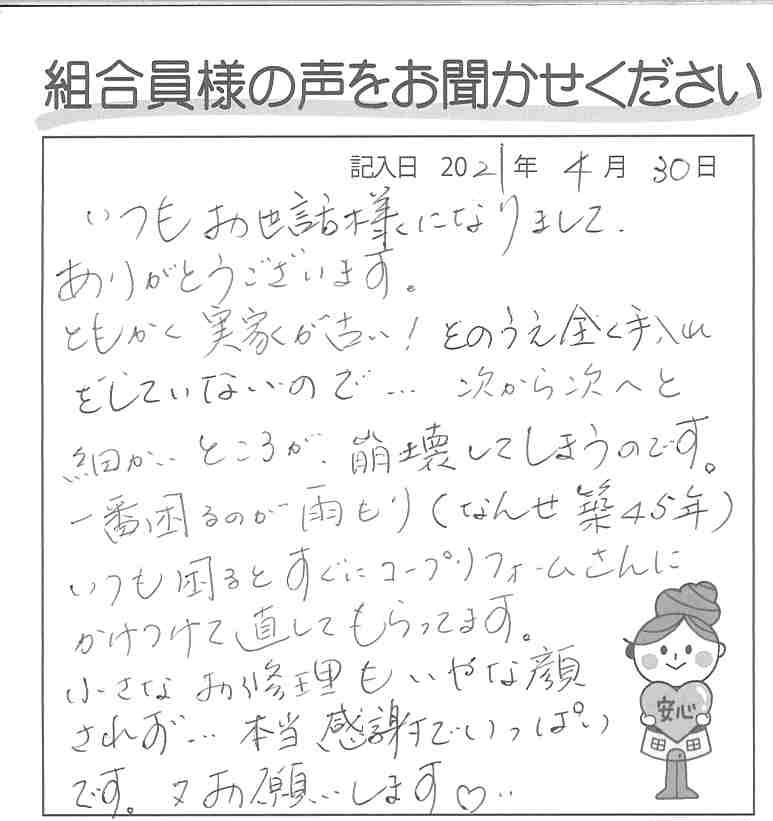 組合員様の声をお聞かせください
記入日 2021年 4月 30日
いつもお世話様になりまして.
ありがとうございます。
ともかく実家が古い！そのうえ全く手入れ
をしていないので… 次から次へと
細かいところが、崩壊してしまうのです。
一番困るのが雨もり（なんせ築45年）
いつも困るとすぐにコープリフォームさんに
かけつけて直してもらってます。
小さなお修理もいやな顔
されず… 本当感謝でいっぱい
です。又お願いします♡‥
安心